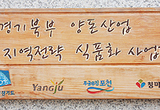 경기북부 양돈산업
지역전략 식품화 사업
경기도 Yangju 포천